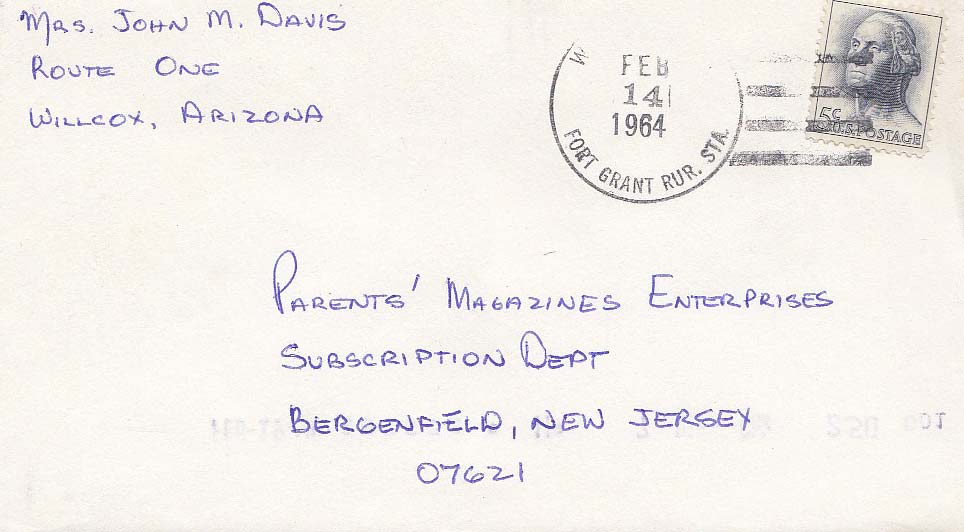 Mrs. John M. Davis
Route One
Willcox, Arizona
FEB
14
1964
FORT GRANT RUR. STA.
5c
U.S. POSTAGE
Parents' Magazines Enterprises
Subscription Dept
Bergenfield, New Jersey
07621